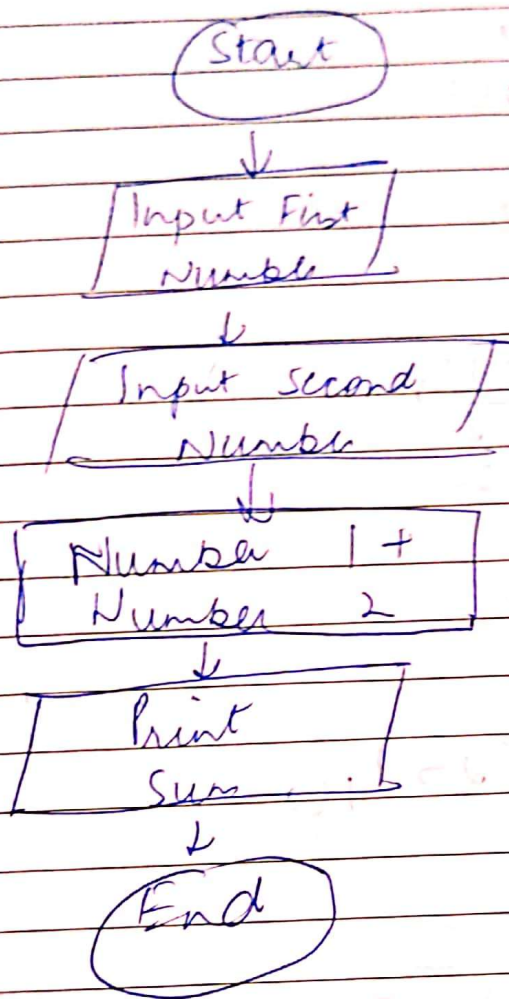 Start
Input First
Number
Input Second
Number
Number 1 +
Number 2
Print
Sum
End